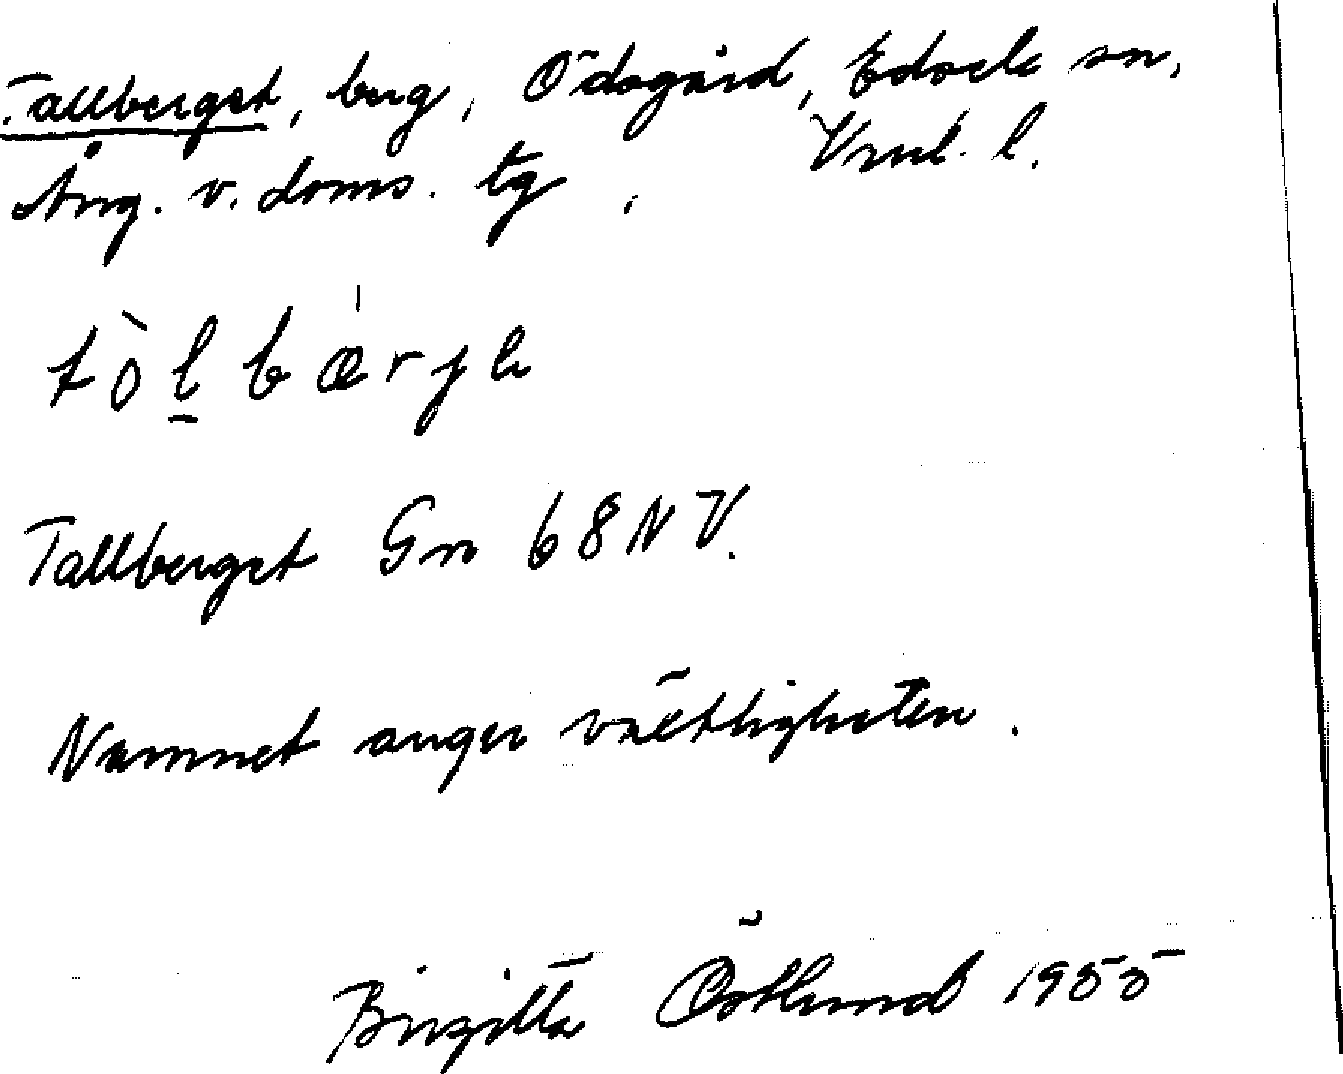 Tallberget, berg, Ödsgård, Edsele sn,
Ång. v. doms. tg, Vnrl. l.
tòḻbærje
Tallberget Gn 68 NV.
Namnet anger växtligheten.
Birgitta Östlund 1955